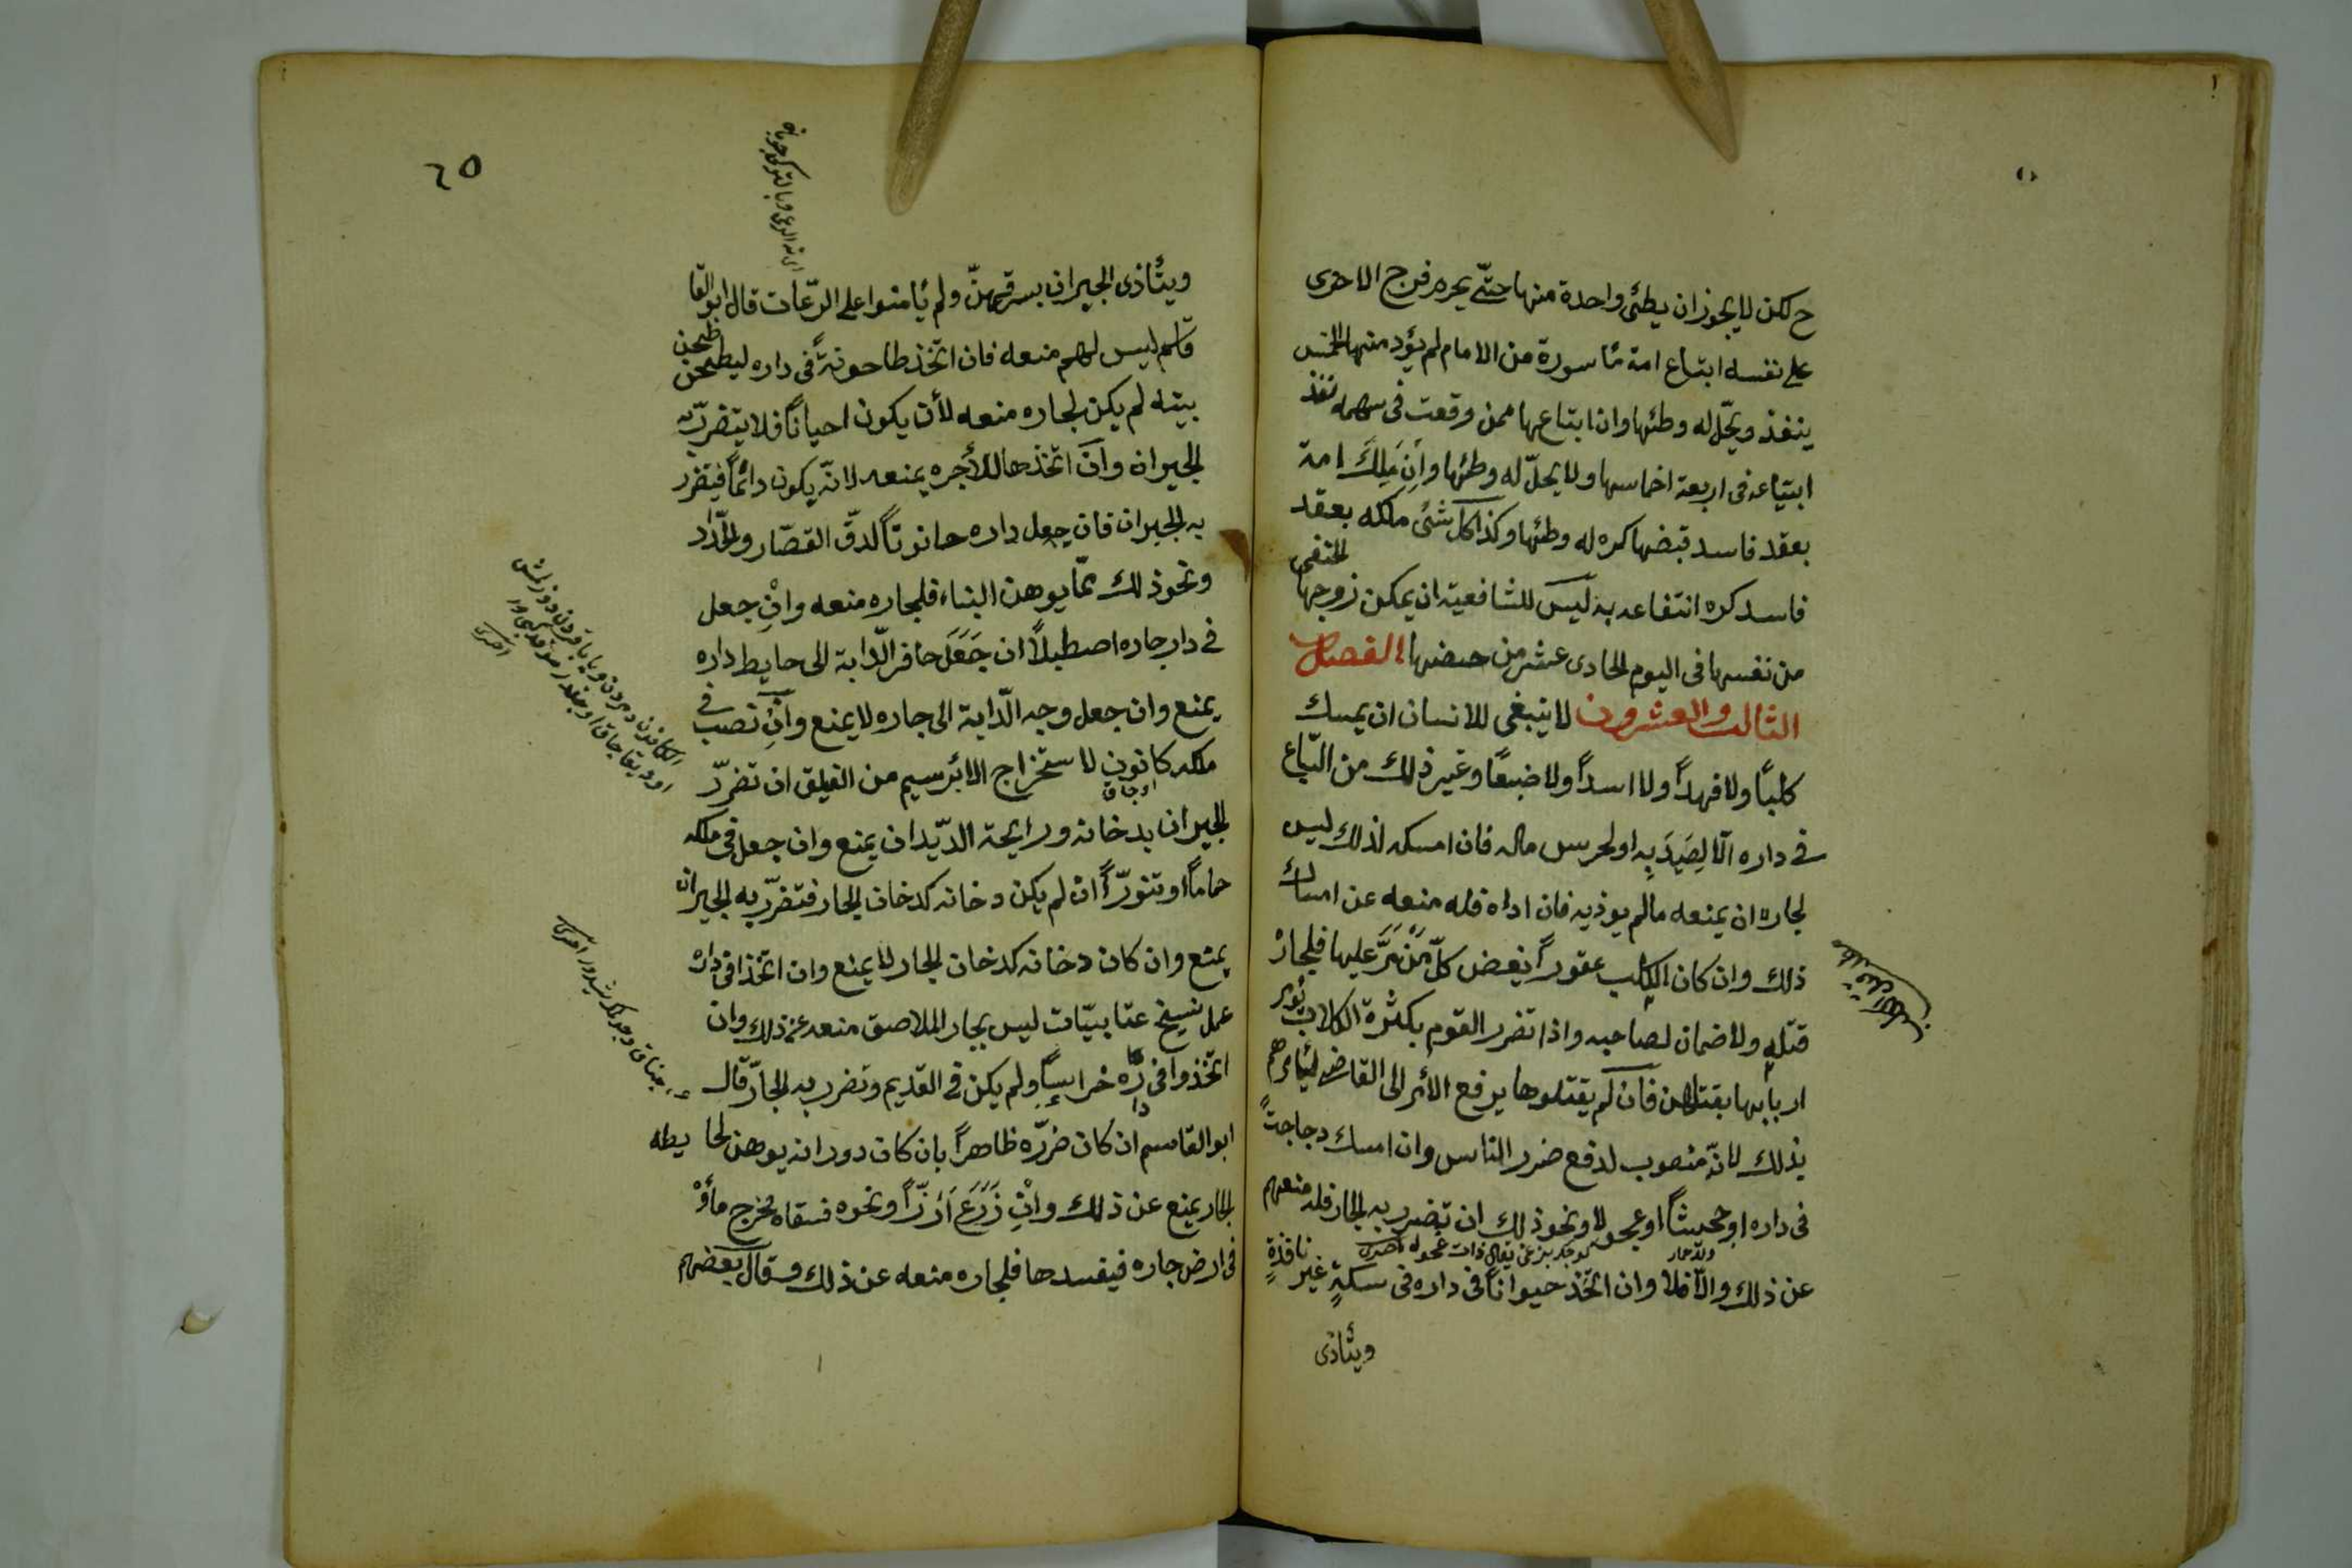 ح لكن لا يجوز ان يطئ واحدة منها حتّى يحرم فرج الاخرى
على نفسه ابتاع امة مأسورة من الامام لم يؤد منها الخمس
ينفذ ويحلّ له وطئها وان ابتاعها ممن وقعت فى سهمه نفذ
ابتياعه فى اربعة اخماسها ولا يحلّ له وطئها وان ملك امة
بعقد فاسد قبضها كره له وطئها وكذا كل شئ ملكه بعقد
فاسد كره انتفاعه به ليس للشافعية ان يمكن زوجها الحنفى
من نفسها فى اليوم الحادى عشر من حيضها الفصل
الثالث والعشرون لا ينبغى للانسان ان يمسك
كلباً ولا فهداً ولا اسداً ولا ضبعاً وغير ذلك من السّباع
فى داره الّا لِصَيدٍ به او لحرس ماله فان امسكه لذلك ليس
لجاره ان يمنعه مالم يوذيه فان اداه فله منعه عن امساك
ذلك وان كان الكلب عقوراً يعض كلّ مَنْ مَرَّ عليها فلجاره
قتله ولا ضمان لصاحبه واذا تضرر القوم بكثرة الكلاب يؤمر
اربابها بقتلهن فان لم يقتلوها يرفع الأمر الى القاضى ليأمرهم
بذلك لانّه منصوب لدفع ضرر الناس وان امسك دجاجةً
فى داره او جحشاً او عجولا ونحو ذلك ان تضرر به الجار فله منعهم
ولد حمار
عن ذلك والّا فلا وان اتّخذ حيواناً فى داره فى سكةٍ غير نافذةٍ
ويتأذى
٦٥
ويتأذى الجيران بسرقتهنّ ولم يأمنوا على الرّعات قال ابو القا
قاسم ليس لهم منعه فان اتّخذ طاحونةً فى داره ليطحن
بيته لم يكن لجاره منعه لأن يكون احياناً فلا يتضرّر به
الجيران وان اتّخذها للأجره يمنعه لانّه يكون دائماً فيتضرر
به الجيران فان جعل داره حانوتاً لدقّ القصّار والحدّاد
ونحو ذلك ممّا يوهن البناء فلجاره منعه وانْ جعل
فى دار جاره اصطبلاً ان جَعَلَ حافر الدّابة الى حايط داره
يمنع وان جعل وجه الدّابة الى جاره لا يمنع وان نصب فى
ملكه كانون لاستخراج الابريسيم من الفيلق ان تضرّر
اوجاق
الجيران بدخانه ورايحة الدّيدان يمنع وان جعل فى ملكه
حماماً او تنورّاً ان لم يكن دخانه كدخان الجار فتضرّر به الجيران
يمنع وان كان دخانه كدخان الجار لا يمنع وان اتّخذ فى داره
عمل نسيج عتابيّات ليس بجار الملاصق منعه عن ذلك وان
اتّخذوا فى داره خراساً ولم يكن فى القديم وتضرر به الجار قال
ابو القاسم ان كان ضرّره ظاهراً بان كان دورانه يوهن لحايطه
الجار يمنع عن ذلك وانْ زَرَعَ اَرُزّاً ونحوه فسقاه يخرج ماؤه
فى ارض جاره فيفسدها فلجاره منعه عن ذلك وقال بعضهم